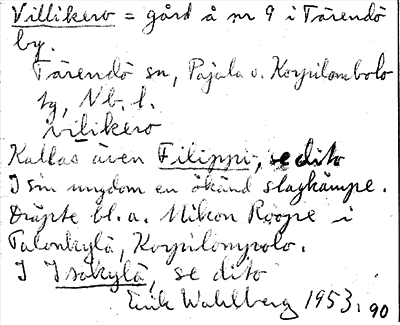 Villikero = gård å nr 9 i Tärendö
by.
Tärendö sn, Pajala o. Korpilombolo
tg, Nb. l.
vilikero
Kallas även Filippi, se dito
I sin ungdom en ökänd slagkämpe.
Dräpte bl.a. Mikon Roope i
Talonkylä, Korpilompolo.
I Isokylä, se dito
Erik Wahlberg 1953. 90